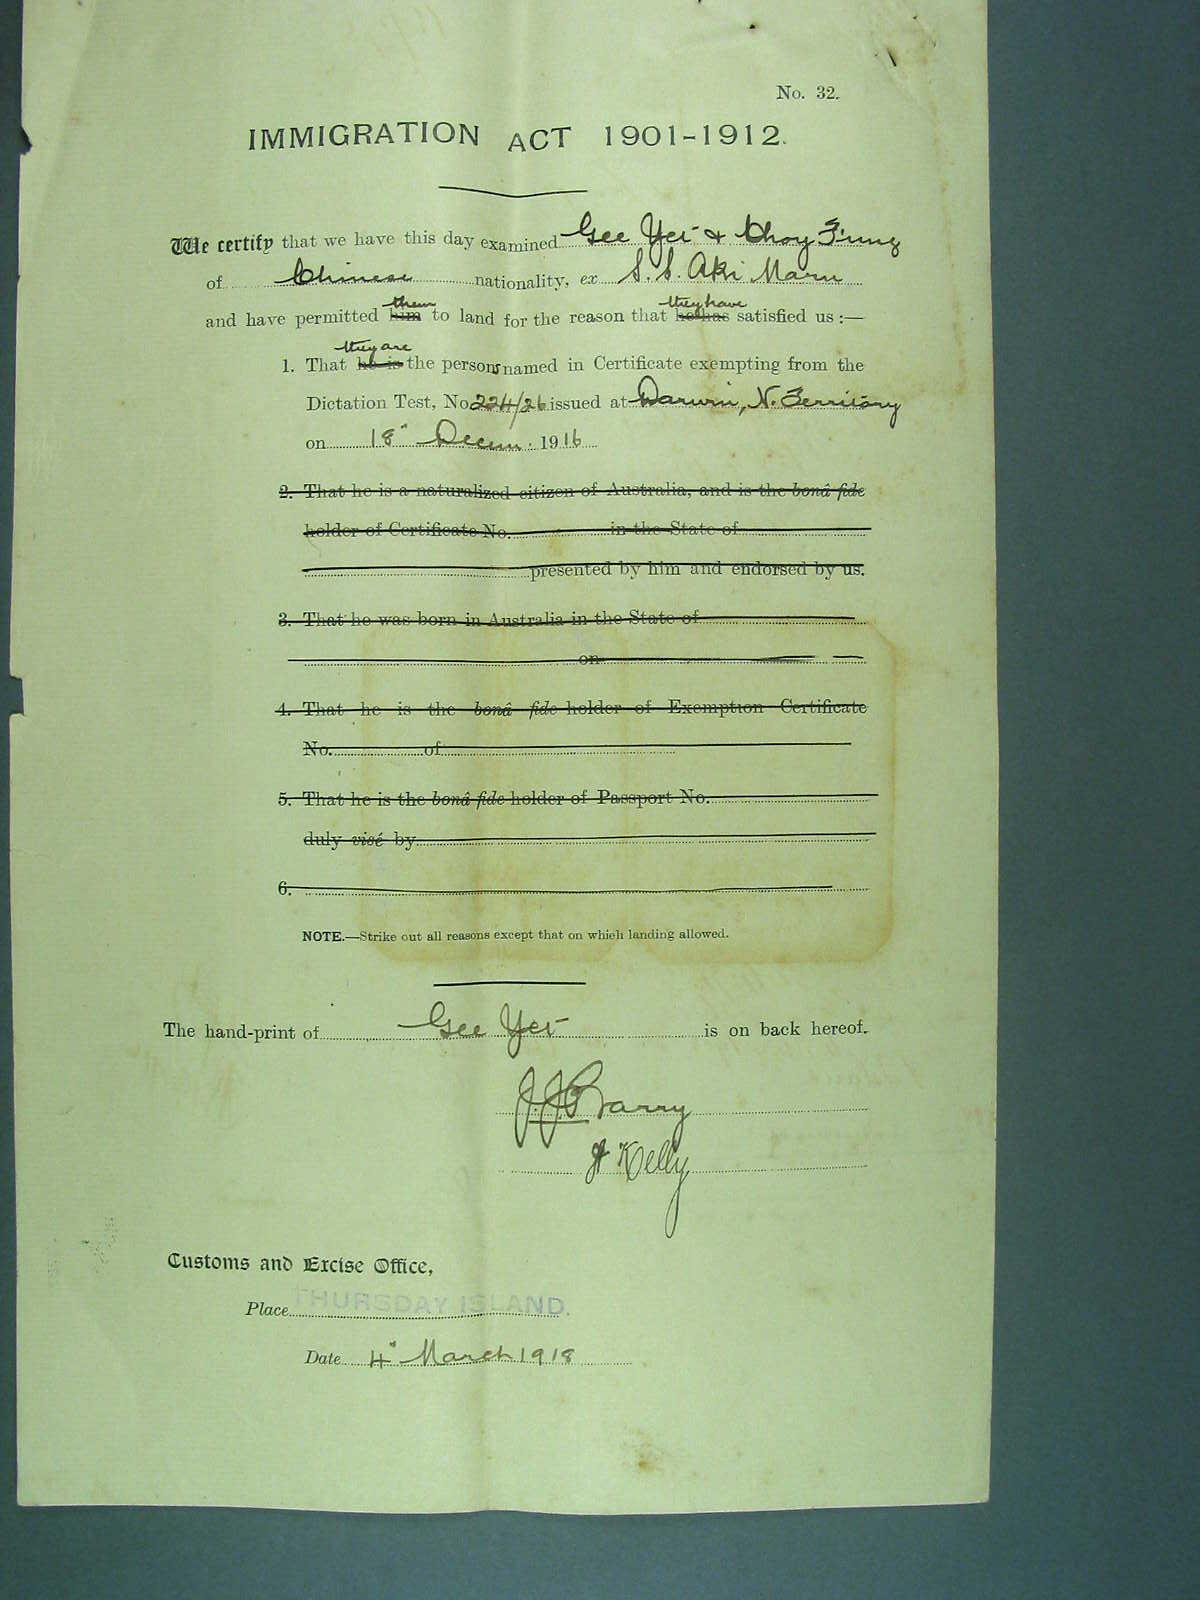 No. 32.
IMMIGRATION ACT 1901-1912.
We certify that we have this day examined Gee Yet & Choy Fung
of Chinese nationality, ex S.S. Aki Maru
them they have
and have permitted him to land for the reason that he has satisfied us :—
they are
1. That he is the persons named in Certificate exempting from the
Dictation Test, No 224/26 issued at Darwin, N. Territory
on 18" Decem. 1916
2. That he is a naturalized citizen of Australia, and is the bonâ fide
holder of Certificate No. in the State of
presented by him and endorsed by us.
3. That he was born in Australia in the State of
on
4. That he is the bonâ fide holder of Exemption Certificate
No. of
5. That he is the bonâ fide holder of Passport No.
duly visé by
6.
NOTE.—Strike out all reasons except that on which landing allowed.
The hand-print of Gee Yet is on back hereof.
J.J. Barry
Kelly
Customs and Excise Office,
Place THURSDAY ISLAND.
Date 4" March 1918